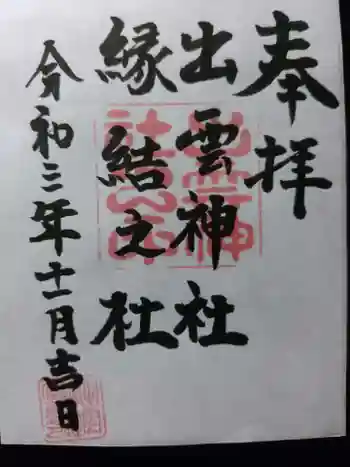 奉拝
出雲神社
縁結之社
令和三年十一月吉日